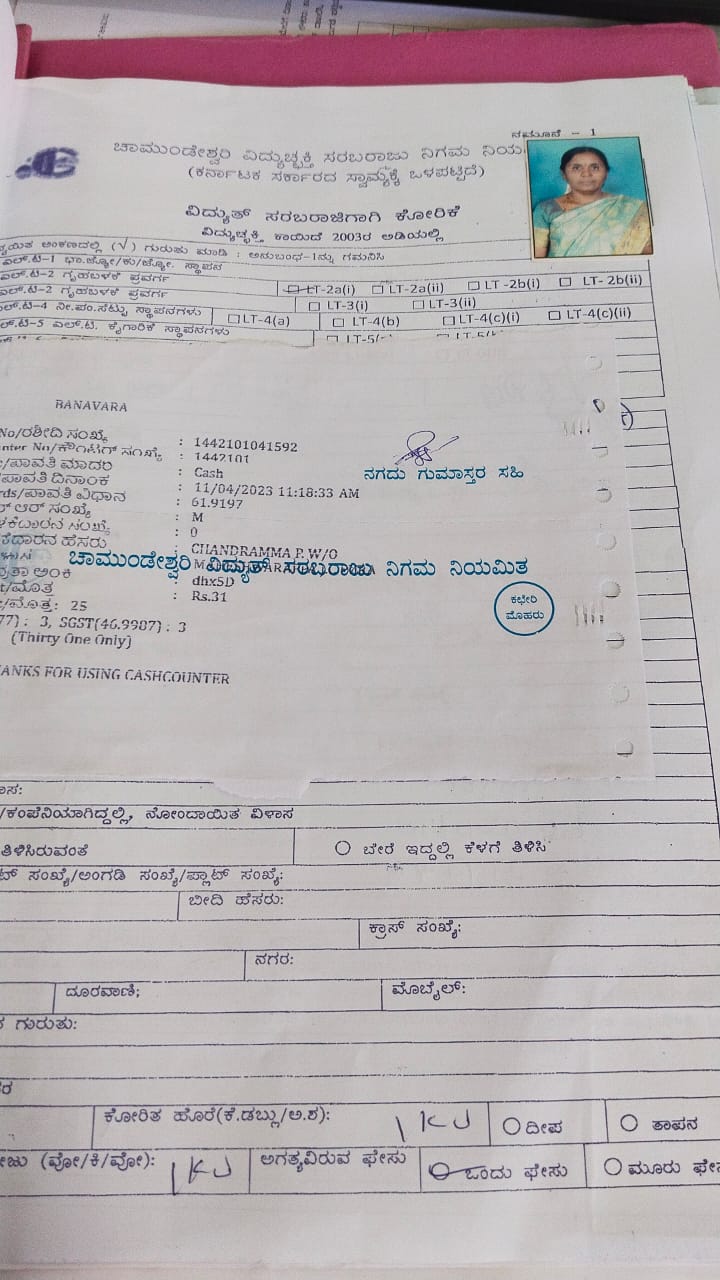 ನಮೂನೆ - 1
ಚಾಮುಂಡೇಶ್ವರಿ ವಿದ್ಯುಚ್ಛಕ್ತಿ ಸರಬರಾಜು ನಿಗಮ ನಿಯ
(ಕರ್ನಾಟಕ ಸರ್ಕಾರದ ಸ್ವಾಮ್ಯಕ್ಕೆ ಒಳಪಟ್ಟಿದೆ)
ವಿದ್ಯುತ್ ಸರಬರಾಜಿಗಾಗಿ ಕೋರಿಕೆ
ವಿದ್ಯುಚ್ಛಕ್ತಿ ಕಾಯಿದೆ 2003ರ ಅಡಿಯಲ್ಲಿ
ಅಂಕಣದಲ್ಲಿ (√) ಗುರುತು ಮಾಡಿ : ಅನುಬಂಧ-1ನ್ನು ಗಮನಿಸಿ
ಎಲ್.ಟಿ-1 ಭಾ.ಜ್ಯೋ/ಕು/ಜ್ಯೋ. ಸ್ಥಾಪನ
ಎಲ್.ಟಿ-2 ಗೃಹಬಳಕೆ ಪ್ರವರ್ಗ LT-2a(i) LT-2a(ii) LT -2b(i) LT- 2b(ii)
ಎಲ್.ಟಿ-2 ಗೃಹಬಳಕೆ ಪ್ರವರ್ಗ LT-3(i) LT-3(ii)
ಎಲ್.ಟಿ-4 ನೀ.ಪಂ.ಸೆಟ್ಟು ಸ್ಥಾಪನಗಳು LT-4(a) LT-4(b) LT-4(c)(i) LT-4(c)(ii)
ಎಲ್.ಟಿ-5 ಎಲ್.ಟಿ. ಕೈಗಾರಿಕೆ ಸ್ಥಾಪನಗಳು
BANAVARA
No/ರಶೀದಿ ಸಂಖ್ಯೆ : 1442101041592
nter No/ಕೌಂಟಿಗ್ ಸಂಖ್ಯೆ : 1442101
/ಪಾವತಿ ಮಾದರಿ : Cash
ಪಾವತಿ ದಿನಾಂಕ : 11/04/2023 11:18:33 AM
rds/ಪಾವತಿ ವಿಧಾನ : 61.9197
ಆರ್ ಸಂಖ್ಯೆ : M
: 0
ಕೆದಾರನ ಹೆಸರು : CHANDRAMMA P. W/O
ನಗದು ಗುಮಾಸ್ತರ ಸಹಿ
ಚಾಮುಂಡೇಶ್ವರಿ ವಿದ್ಯುತ್ ಸರಬರಾಜು ನಿಗಮ ನಿಯಮಿತ
ಅಂಕಿ : dhx5D
/ಮೊತ್ತ : Rs.31
/ಮೊತ್ತ: 25
77) : 3, SGST(46.9987) : 3
(Thirty One Only)
ಕಛೇರಿ
ಮೊಹರು
ANKS FOR USING CASHCOUNTER
/ಕಂಪೆನಿಯಾಗಿದ್ದಲ್ಲಿ, ನೋಂದಾಯಿತ ವಿಳಾಸ
ತಿಳಿಸಿರುವಂತೆ ಬೇರೆ ಇದ್ದಲ್ಲಿ ಕೆಳಗೆ ತಿಳಿಸಿ
ಟ್ ಸಂಖ್ಯೆ/ಅಂಗಡಿ ಸಂಖ್ಯೆ/ಪ್ಲಾಟ್ ಸಂಖ್ಯೆ:
ಬೀದಿ ಹೆಸರು:
ಕ್ರಾಸ್ ಸಂಖ್ಯೆ:
ನಗರ:
ದೂರವಾಣಿ; ಮೊಬೈಲ್:
ಗುರುತು:
ಕೋರಿತ ಹೊರೆ(ಕೆ.ಡಬ್ಲು/ಅ.ಶ): 1 KW ದೀಪ ತಾಪನ
(ವೋ/ಕಿ/ವೋ): 1KW ಅಗತ್ಯವಿರುವ ಫೇಸು ಒಂದು ಫೇಸು ಮೂರು ಫೇಸ